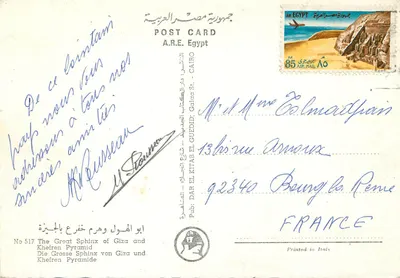 جمهورية مصر العربية
POST CARD
A.R.E. Egypt
A.R. EGYPT
85
AIR MAIL
٨٥
De ce lointain
pays nous vous
adressons à tous nos
sincères amitiés
M. et Mme
13 bis rue
92340 Bourg la Reine
FRANCE
PUB. DAR EL KITAB EL GUEDID
CAIRO
ابو الهول وهرم خفرع بالجيزة
No 517 The Great Sphinx of Giza and
Khefren Pyramid
Die Grosse Sphinx von Giza und
Khefren Pyramide
Printed in Italy